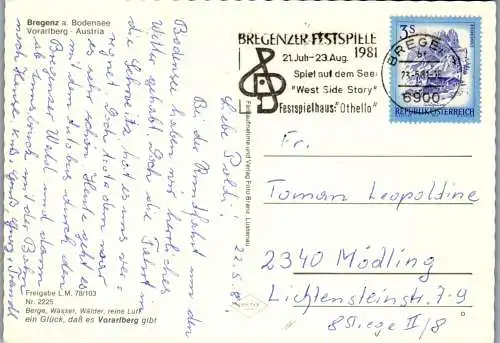 Bregenz a. Bodensee
Vorarlberg - Austria
BREGENZER FESTSPIELE
1981
21. Juli - 23. Aug.
Spiel auf dem See:
"West Side Story"
Festspielhaus: "Othello"
BREGENZ
6900
3 S
REPUBLIK ÖSTERREICH
Liebe Poldi!
22.5.81.
Bei der Rundfahrt um den
Bodensee haben wir herrliches
Wetter gehabt. Doch die Fahrt in
die Schweiz, hat es uns ver-
regnet. Doch trotzdem war
es sehr schön. Heute geht es
mit den Autobus durch den
Bregenzer Wald und dann
ab Innsbruck mit der Bahn
nach Hause.
Freigabe L.M. 78/103
Nr. 2225
Berge, Wasser, Wälder, reine Luft
ein Glück, daß es Vorarlberg gibt
Farbaufnahme und Verlag Foto Branz, Lustenau
Fr.
Toman Leopoldine
2340 Mödling
Lichtensteinstr. 7-9
Stiege II/8